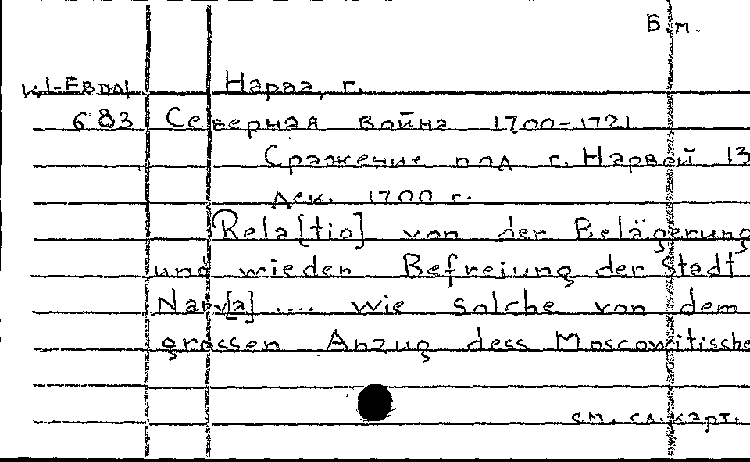 Б.м.
Нарва, г.
683 Северная война 1700-1721
Сражение под г. Нарвой 13
дек. 1700 г.
Rela[tio] von der Belägerung
und wieder Befreiung der Stadt
Narv[a] .... wie solche von dem
grossen Anzug dess Moscowitische
см. сл. карт.